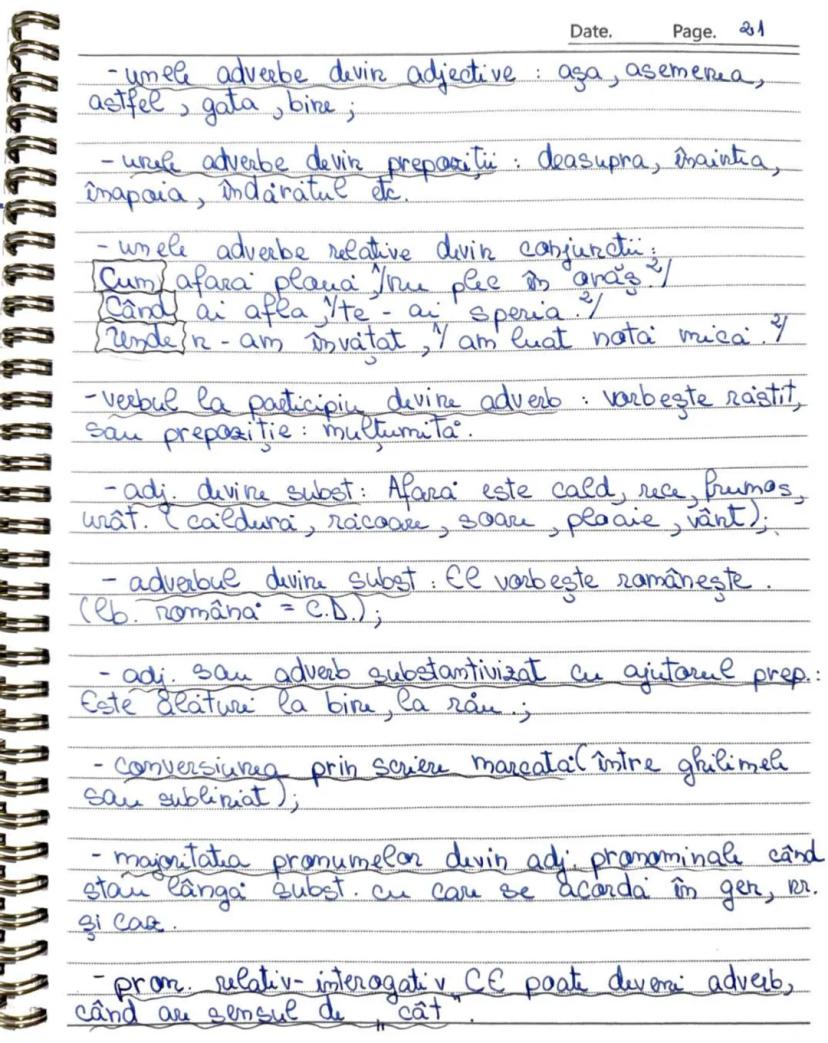 Date. Page. 21
- unele adverbe devin adjective : așa, asemenea,
astfel, gata, bine ;
- unele adverbe devin prepoziții : deasupra, înaintea,
înapoia, îndărătul etc.
- unele adverbe relative devin conjuncții :
Cum afară plouă ,1/nu plec în oraș.2/
Când ai afla ,1/te-ai speria.2/
Unde n-am învățat ,1/ am luat notă mică.2/
- verbul la participiu devine adverb : vorbește răstit,
sau prepoziție : mulțumită.
- adj. devine subst : Afară este cald, rece, frumos,
urât. (căldură, răcoare, soare, ploaie, vânt);
- adverbul devine subst : El vorbește românește.
(lb. română = C.D.);
- adj. sau adverb substantivizat cu ajutorul prep.:
Este alături la bine, la rău.;
- conversiunea prin scriere marcată (între ghilimele
sau subliniat);
- majoritatea pronumelor devin adj. pronominale când
stau lângă subst. cu care se acordă în gen, nr.
și caz.
- pron. relativ-interogativ CE poate deveni adverb,
când are sensul de „cât".